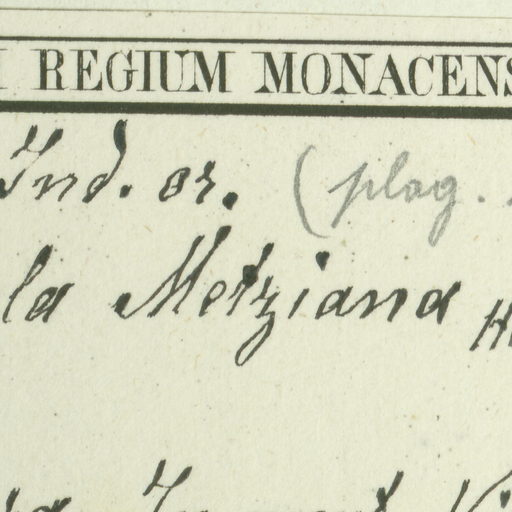 REGIUM MONACENS
Ind. or. (plag.
la Metziana